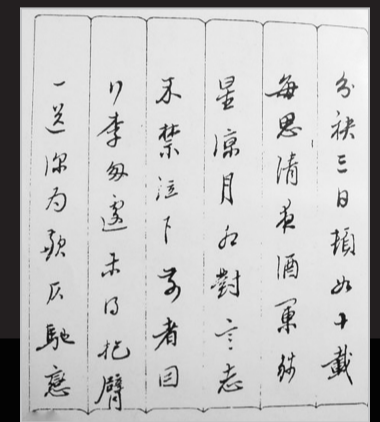 分袂三日頓如十載
每思清夜酒闌疎
星凉月相對言志
不禁泣下前者因
行李匆遽未得把臂
一送深為歉仄馳戀